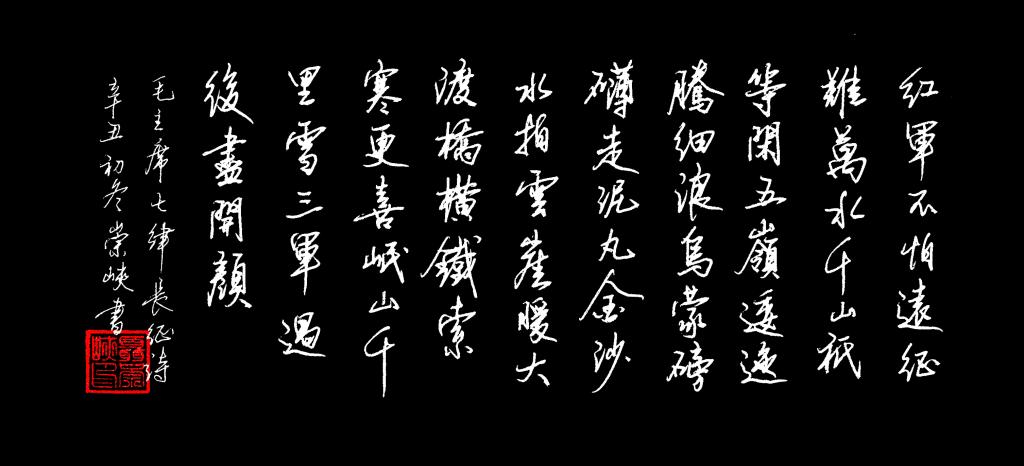 紅軍不怕遠征
難萬水千山祇
等閑五嶺逶迤
騰細浪烏蒙磅
礴走泥丸金沙
水拍雲崖暖大
渡橋橫鐵索
寒更喜岷山千
里雪三軍過
後盡開顏
毛主席七律長征詩
辛丑初冬崇峽書